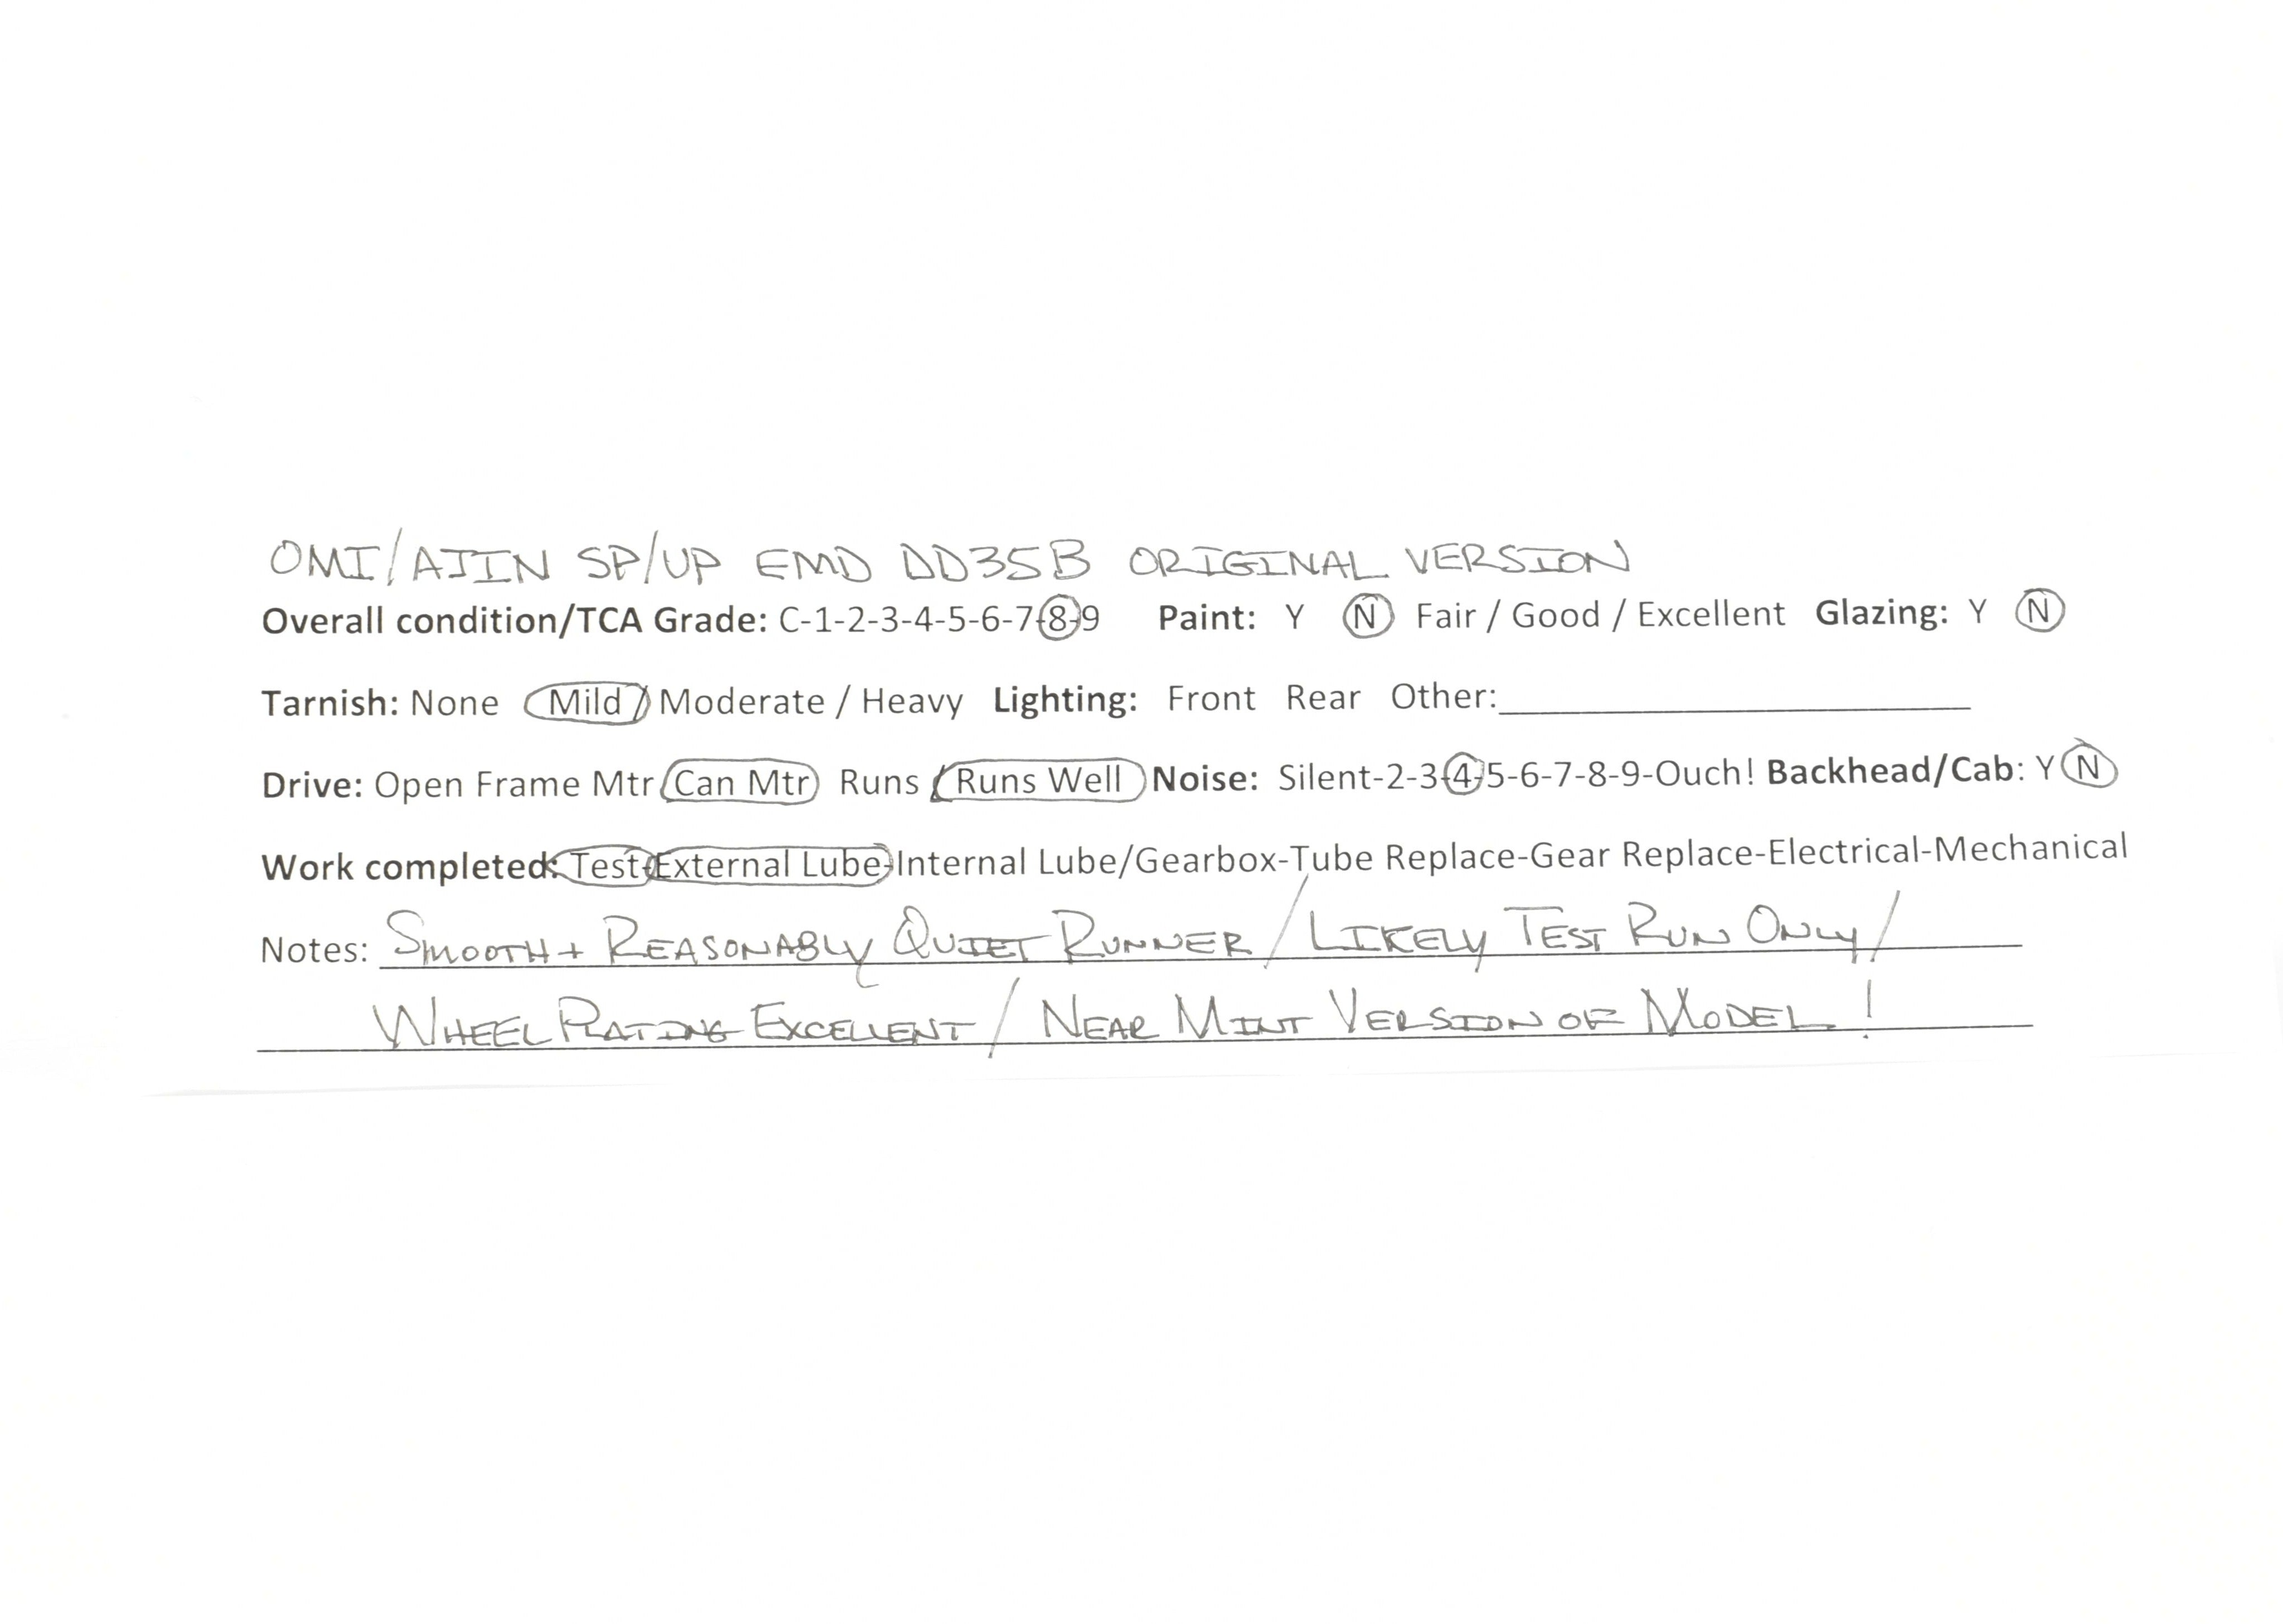 OMI/AJIN SP/UP EMD DD35B ORIGINAL VERSION
Overall condition/TCA Grade: C-1-2-3-4-5-6-7-8-9 Paint: Y N Fair / Good / Excellent Glazing: Y N
Tarnish: None Mild / Moderate / Heavy Lighting: Front Rear Other:
Drive: Open Frame Mtr / Can Mtr Runs / Runs Well Noise: Silent-2-3-4-5-6-7-8-9-Ouch! Backhead/Cab: Y N
Work completed: Test-External Lube-Internal Lube/Gearbox-Tube Replace-Gear Replace-Electrical-Mechanical
Notes: SMOOTH + REASONABLY QUIET RUNNER / LIKELY TEST RUN ONLY /
WHEEL PLATING EXCELLENT / NEAR MINT VERSION OF MODEL !